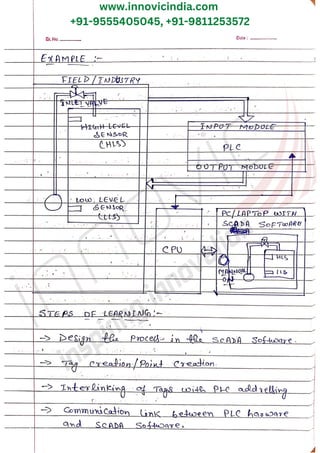 www.innovicindia.com
+91-9555405045, +91-9811253572
Date :
EXAMPLE :-
FIELD / INDUSTRY
INLET VALVE
HIGH LEVEL
SENSOR
(HLS)
INPUT MODULE
PLC
OUTPUT MODULE
LOW LEVEL
SENSOR
(LLS)
PC/LAPTOP WITH
SCADA SOFTWARE
CPU
HLS
LLS
STEPS OF LEARNING:-
→ Design the Proced in the SCADA Software.
→ Tag Creation/Point Creation.
→ Interlinking of Tags with PLC addressing
→ Communication link between PLC hardware
and SCADA Software.